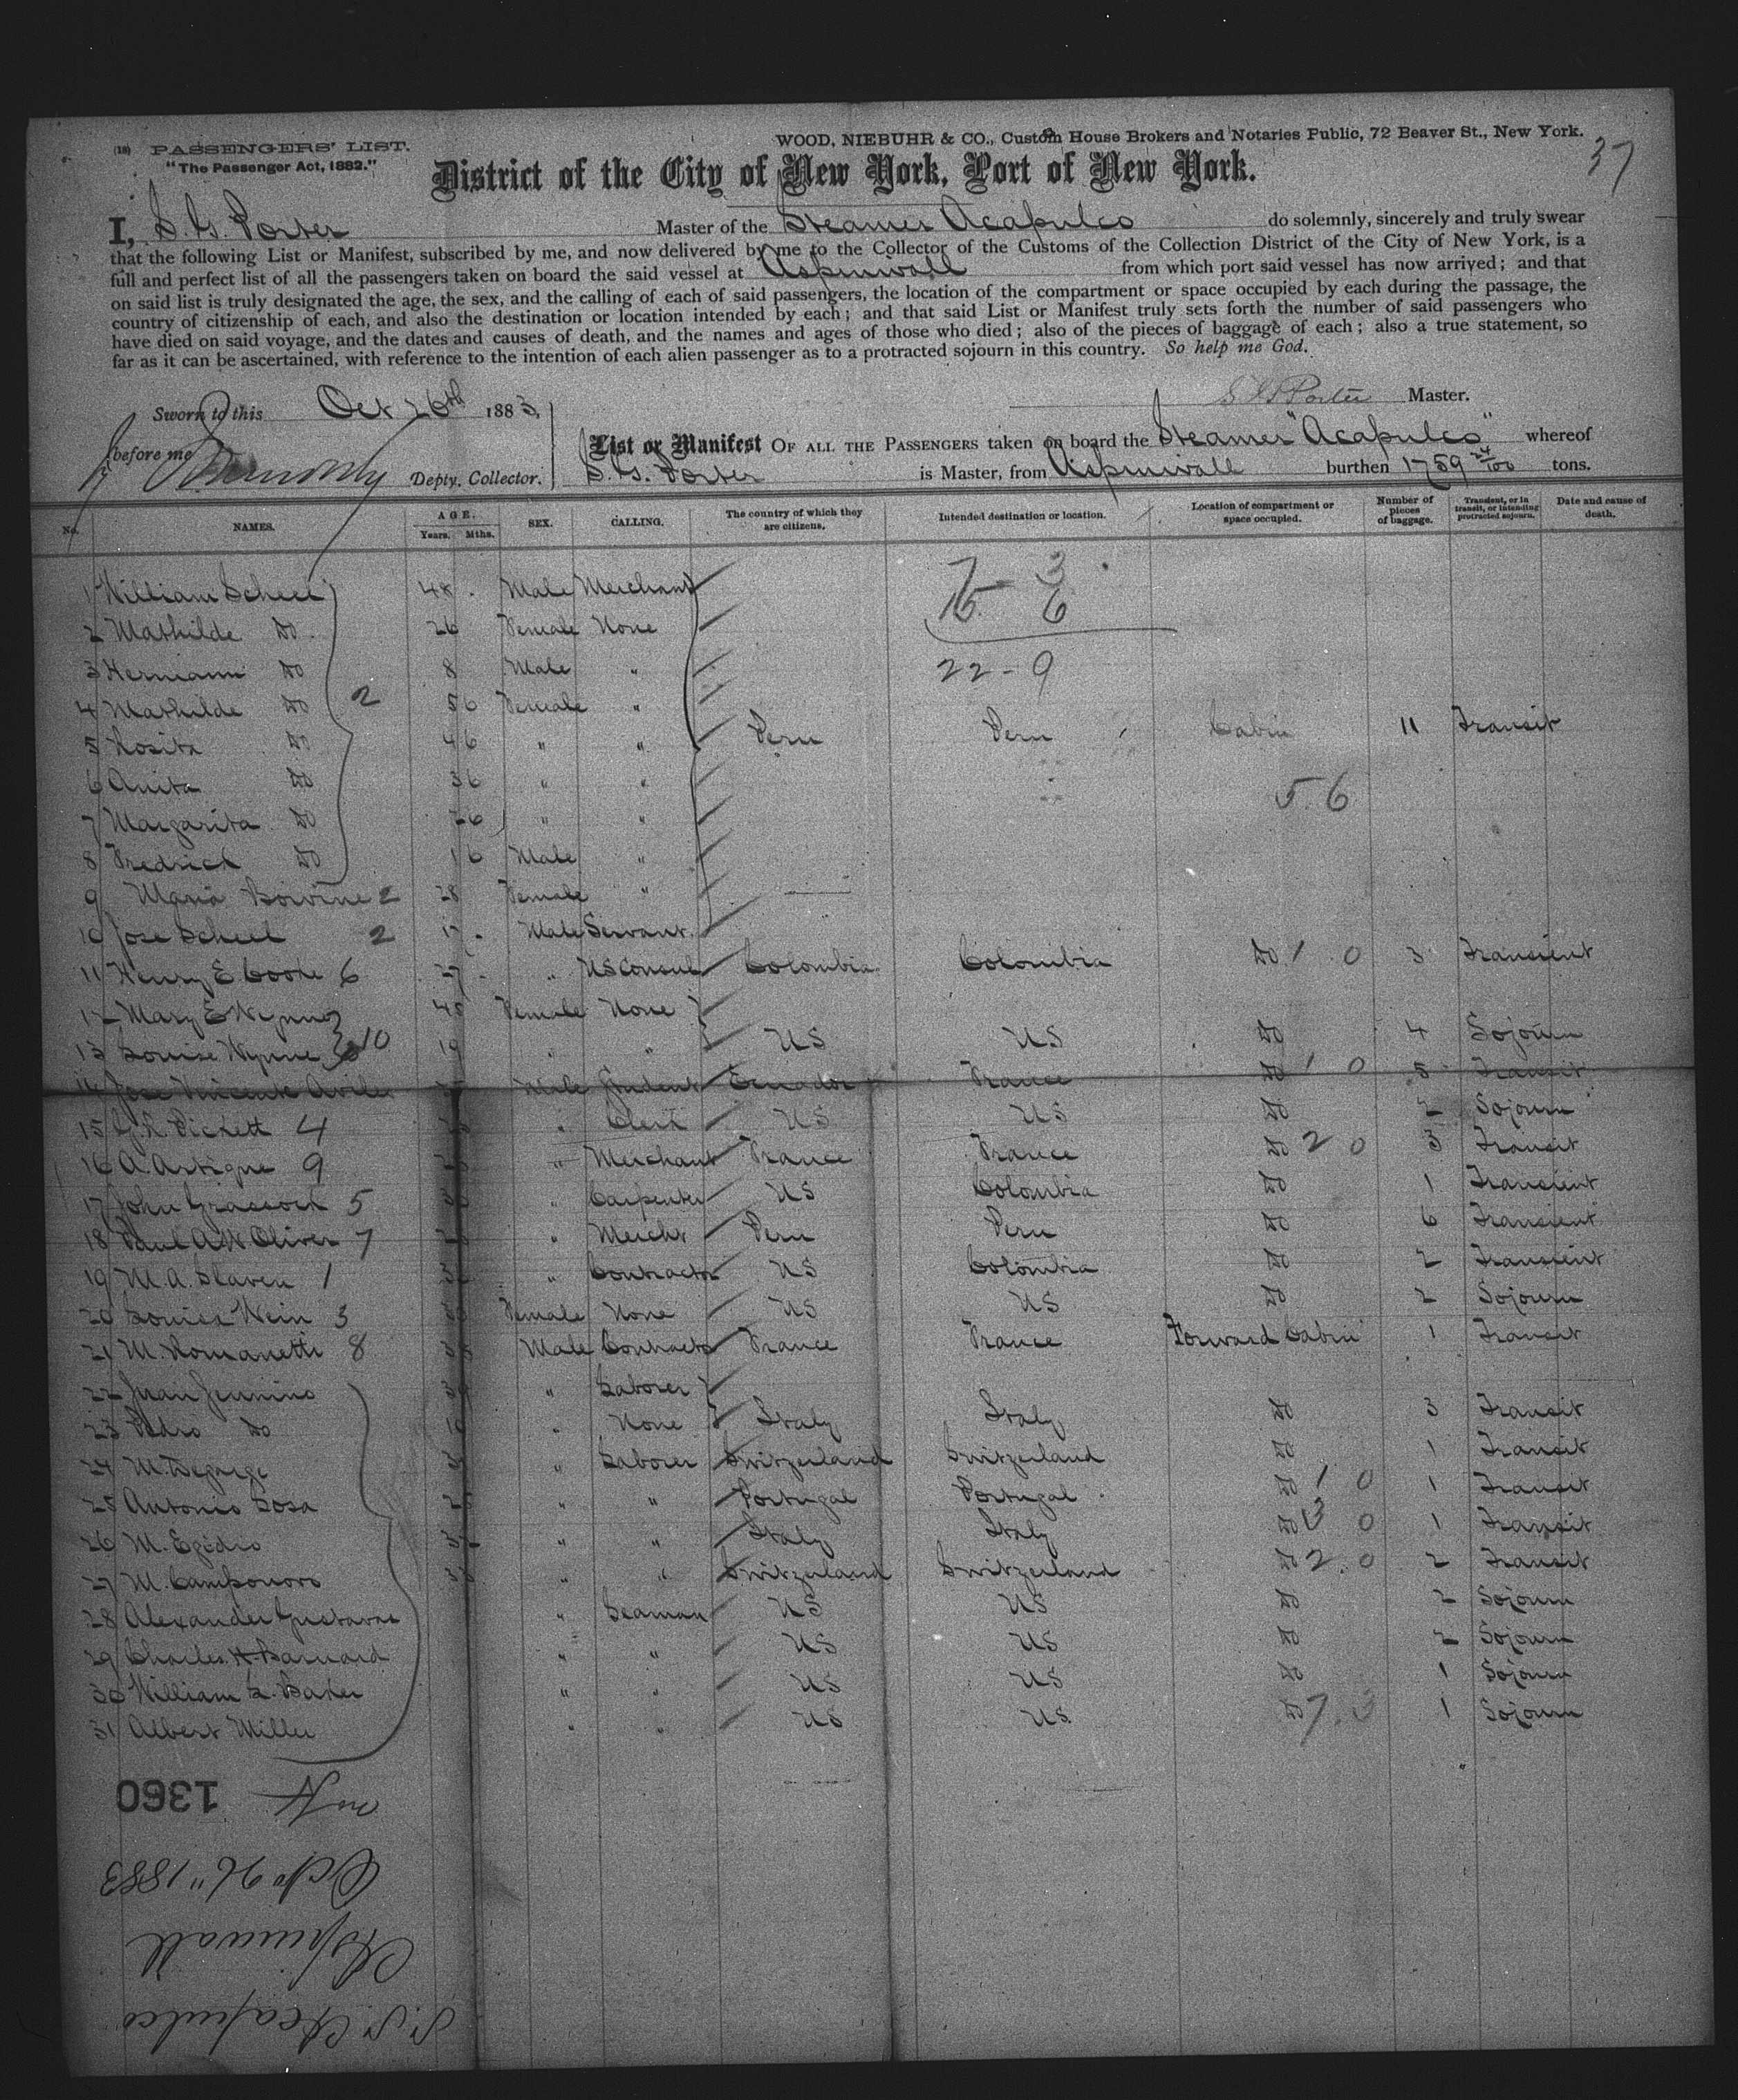 (18) PASSENGERS' LIST.
"The Passenger Act, 1882."
WOOD, NIEBUHR & CO., Custom House Brokers and Notaries Public, 72 Beaver St., New York.
37
District of the City of New York, Port of New York.
I, S. G. Porter Master of the Steamer Acapulco do solemnly, sincerely and truly swear
that the following List or Manifest, subscribed by me, and now delivered by me to the Collector of the Customs of the Collection District of the City of New York, is a
full and perfect list of all the passengers taken on board the said vessel at Aspinwall from which port said vessel has now arrived; and that
on said list is truly designated the age, the sex, and the calling of each of said passengers, the location of the compartment or space occupied by each during the passage, the
country of citizenship of each, and also the destination or location intended by each; and that said List or Manifest truly sets forth the number of said passengers who
have died on said voyage, and the dates and causes of death, and the names and ages of those who died; also of the pieces of baggage of each; also a true statement, so
far as it can be ascertained, with reference to the intention of each alien passenger as to a protracted sojourn in this country. So help me God.
S G Porter Master.
Sworn to this Oct 26th 1883,
before me
Depty. Collector.
List or Manifest OF ALL THE PASSENGERS taken on board the Steamer "Acapulco" whereof
S. G. Porter is Master, from Aspinwall burthen 1759 24/100 tons.
No. NAMES. AGE. Years. Mths. SEX. CALLING. The country of which they are citizens. Intended destination or location. Location of compartment or space occupied. Number of pieces of baggage. Transient, or in transit, or intending protracted sojourn. Date and cause of death.
7 - 3
15 6
22 - 9
1 William Scheel 48 Male Merchant
2 Mathilde Do 26 Female None
3 Hermann Do 8 Male "
4 Mathilde Do 5 6 Female "
2
5 Rosita Do 4 6 " " Peru Peru Cabin 11 Transit
6 Anita Do 3 6 " "
5.6
7 Margarita Do 2 6 " "
8 Fredrick Do 1 6 Male "
9 Maria 2 28 Female "
10 Jose Scheel 2 17 Male Servant
11 Henry E. Cooke 6 27 " US Consul Colombia Colombia Do 1 0 3 Transient
12 Mary E Wynne 45 Female None
13 Louise Wynne 10 19 " " US US Do 4 Sojourn
14 Jose Vicente Male Student Ecuador France Do 1 0 5 Transit
15 Pickett 4 " Clerk US US Do 2 Sojourn
16 A. Artigue 9 " Merchant France France Do 2 0 3 Transit
17 John 5 " Carpenter US Colombia Do 1 Transient
18 Paul A W Oliver 7 " Mercht Peru Peru Do 6 Transient
19 M. A. Slaven 1 " Contractor US Colombia Do 2 Transient
20 Louisa Wein 3 Female None US US Do 2 Sojourn
21 M. Romanetti 8 Male Contractor France France Forward Cabin 1 Transit
22 Juan Jennino " Laborer
23 Pedro Do " None Italy Italy Do 3 Transit
24 M. " Laborer Switzerland Switzerland Do 1 Transit
25 Antonio Sosa " " Portugal Portugal Do 1 0 1 Transit
26 M. Egidio " " Italy Italy Do 3 0 1 Transit
27 M. Camponovo " " Switzerland Switzerland Do 2.0 2 Transit
28 Alexander Gustavus " Seaman US US Do 2 Sojourn
29 Charles H Barnard " " US US Do 2 Sojourn
30 William L. Baker " " US US Do 1 Sojourn
31 Albert Miller " " US US Do 7.3 1 Sojourn
S.S. Acapulco
Aspinwall
Octo 26" 1883
1360